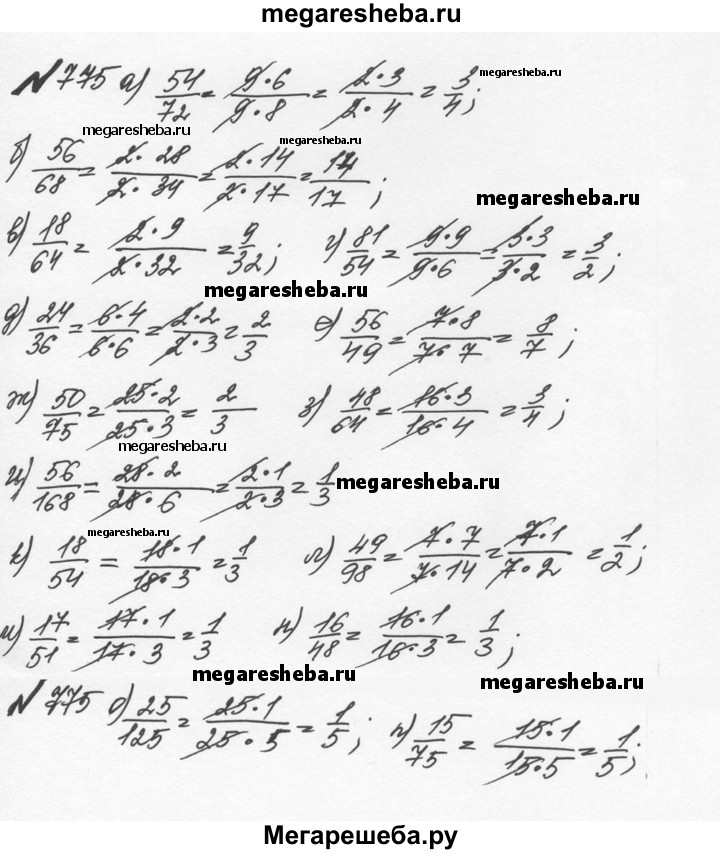 megaresheba.ru
№775 а) 54/72 = 9·6/9·8 = 2·3/2·4 = 3/4; megaresheba.ru
megaresheba.ru megaresheba.ru
б) 56/68 = 2·28/2·34 = 2·14/2·17 = 14/17; megaresheba.ru
в) 18/64 = 2·9/2·32 = 9/32; г) 81/54 = 9·9/9·6 = 3·3/3·2 = 3/2;
megaresheba.ru
д) 24/36 = 6·4/6·6 = 2·2/2·3 = 2/3 е) 56/49 = 7·8/7·7 = 8/7;
ж) 50/75 = 25·2/25·3 = 2/3 з) 48/64 = 16·3/16·4 = 3/4;
megaresheba.ru
и) 56/168 = 28·2/28·6 = 2·1/2·3 = 1/3 megaresheba.ru
megaresheba.ru
к) 18/54 = 18·1/18·3 = 1/3 л) 49/98 = 7·7/7·14 = 7·1/7·2 = 1/2;
м) 17/51 = 17·1/17·3 = 1/3 н) 16/48 = 16·1/16·3 = 1/3;
megaresheba.ru megaresheba.ru
№775 о) 25/125 = 25·1/25·5 = 1/5; п) 15/75 = 15·1/15·5 = 1/5;
Мегарешеба.ру